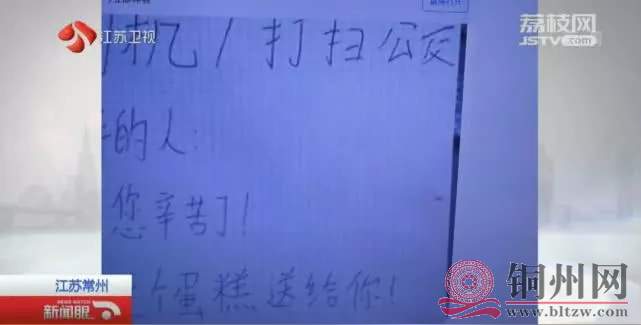 江苏卫视
荔枝网
JSTV.com
机/打扫公交
的人:
您辛苦了!
个蛋糕送给你!
江苏常州
新闻眼
铜州网
www.bltzw.com